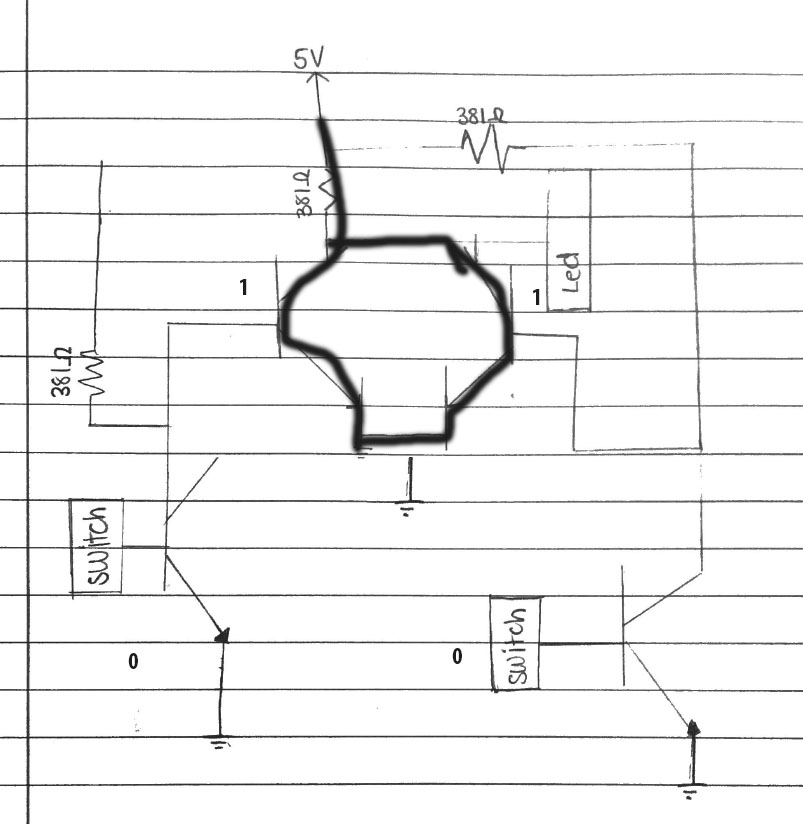 5V
381Ω
381Ω
1
1
Led
381Ω
switch
switch
0
0